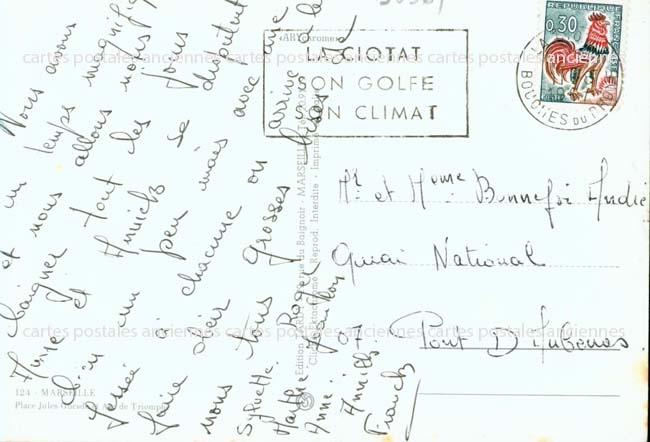 Nous avons
un temps magnifique
et nous allons nous
baigner tout les jours
Anne et Annick se disputent
bien un peu mais avec une
fessée à chacune on arrive à le
faire obéir
nous tous grosses bises
Sylvette Roger
Marthe
Anne Annick
Franck
«ARYArome»
LA CIOTAT
SON GOLFE
SON CLIMAT
REPUBLIQUE FRANÇAISE
0,30
LA CIOTAT
BOUCHES DU RHONE
Mr. et Mme Bonnefoi André
Quai National
07. Pont D'Aubenas
124 - MARSEILLE
Place Jules Guesde et Arc de Triomphe
Edition
rue du Baignoir - MARSEILLE
Reprod. Interdite - Imprimé
cartes postales anciennes cartes postales anciennes
cartes postales anciennes cartes postales anciennes
cartes postales anciennes cartes postales anciennes